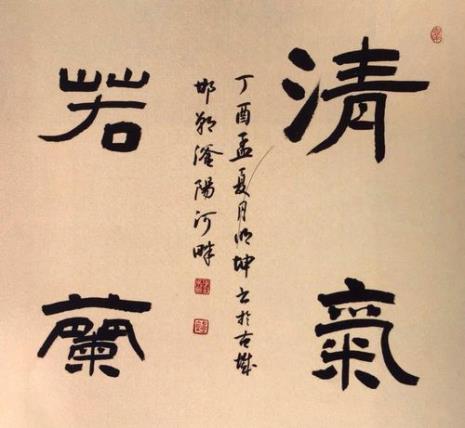 清氣
若蘭
丁酉孟夏月明坤书於古城
邯郸滏陽河畔